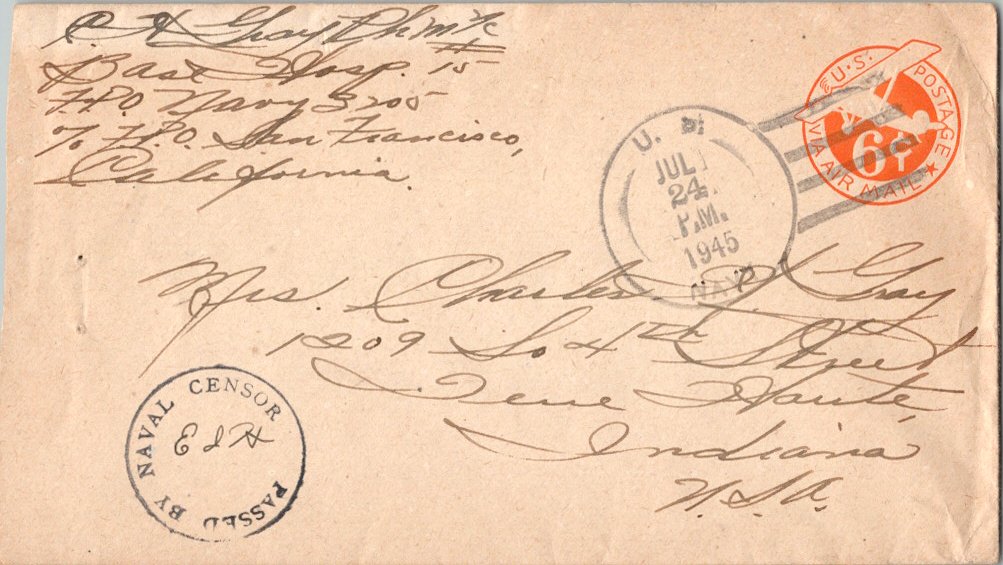 C A Gray PhM 1/c
Base Hosp. #15
F.P.O. Navy 3205
℅ F.P.O. San Francisco,
California.
U.S. POSTAGE
6¢
VIA AIR MAIL
U. S.
JUL
24
P.M.
1945
NAVY
Mrs. Charles A Gray
1209 So 4th Street
Terre Haute,
Indiana
U.S.A.
PASSED BY NAVAL CENSOR